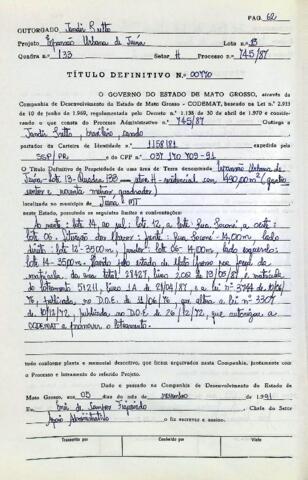 PAG. 62
OUTORGADO Jandir Rutta
Projeto Expansão Urbana de Juína Lote n.º 13
Quadra n.º 133 Setor H Processo n.º 745/87
TÍTULO DEFINITIVO N.º 00770
O GOVERNO DO ESTADO DE MATO GROSSO, através da
Companhia de Desenvolvimento do Estado de Mato Grosso - CODEMAT, baseado na Lei n.º 2.913
de 10 de junho de 1969, regulamentada pelo Decreto n.º 1.138 de 30 de abril de 1970 e consideran-
do o que consta do Processo Administrativo n.º 745/87 Outorga a
Jandir Rutta, brasileiro,
portador da Carteira de Identidade n.º 1158181 expedida por
SSP/PR e do CPF n.º
o Título Definitivo de Propriedade de uma área de Terra denominada Expansão Urbana de
Juína - Lote 13 - Quadra 133 - setor H residencial com 490,00m² (quatro-
centos e noventa metros quadrados)
localizada no município de Juína MT
neste Estado, possuindo os seguintes limites e confrontações:
Ao norte: lote 14, ao sul: lote 12, a leste: Rua a oeste:
lote 06 - frente - Rua 14,00m, lado
direito - lote 12 - 35,00m, fundos - lote 06 - 14,00m, lado esquerdo
lote 14 - 35,00m.
matrícula da área total 28427, livro 2
loteamento 51211, livro 1A de 23/04/87, e a lei n.º 3744 de 10/06/
76, publicada no D.O.E. de 11/06/76, que altera a lei n.º 3307
de 18/12/72, publicada no D.O.E. de 26/12/72, que autorizou a
CODEMAT a promover o loteamento.
tudo conforme planta e memorial descritivo, que ficam arquivados nesta Companhia, juntamente com
o Processo e loteamento do referido Projeto.
Dado e passado na Companhia de Desenvolvimento do Estado de
Mato Grosso, aos 05 dias do mês de novembro de 1991
Eu de Campos Chefe do Setor
Apoio Administrativo o fiz escrever e assino.
Transcrito por Conferido por Visto